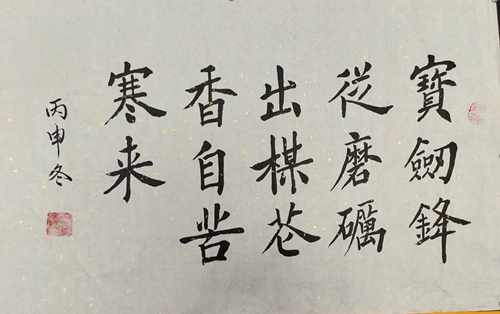 寶劒鋒
從磨礪
出楳花
香自苦
寒来
丙申冬